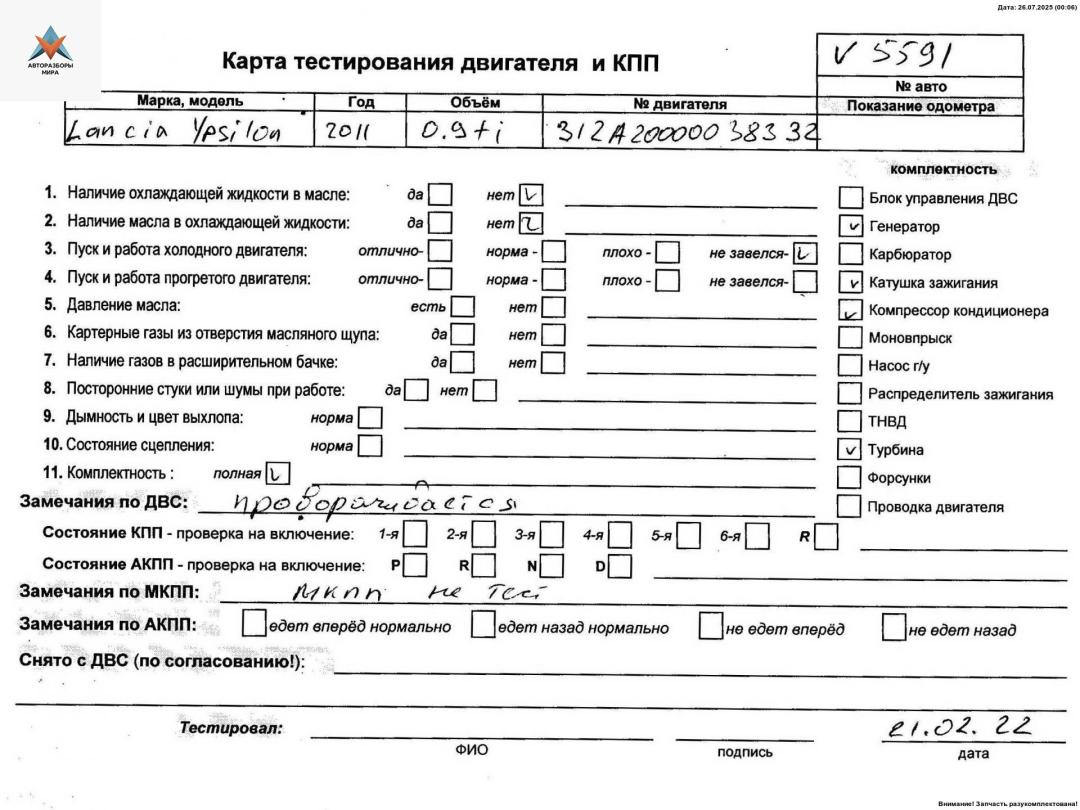 Дата: 26.07.2025 (00:06)
АВТОРАЗБОРЫ
МИРА
Карта тестирования двигателя и КПП
V 5591
№ авто
Марка, модель Год Объём № двигателя Показание одометра
Lancia Ypsilon 2011 0.9ti 312A2000000 38332
комплектность
1. Наличие охлаждающей жидкости в масле: да нет
Блок управления ДВС
2. Наличие масла в охлаждающей жидкости: да нет
Генератор
3. Пуск и работа холодного двигателя: отлично- норма - плохо - не завелся-
Карбюратор
4. Пуск и работа прогретого двигателя: отлично- норма - плохо - не завелся-
Катушка зажигания
5. Давление масла: есть нет
Компрессор кондиционера
6. Картерные газы из отверстия масляного щупа: да нет
Моновпрыск
7. Наличие газов в расширительном бачке: да нет
Насос г/у
8. Посторонние стуки или шумы при работе: да нет
Распределитель зажигания
9. Дымность и цвет выхлопа: норма
ТНВД
10. Состояние сцепления: норма
Турбина
11. Комплектность : полная
Форсунки
Замечания по ДВС: проворачивается
Проводка двигателя
Состояние КПП - проверка на включение: 1-я 2-я 3-я 4-я 5-я 6-я R
Состояние АКПП - проверка на включение: P R N D
Замечания по МКПП: МКПП не тест
Замечания по АКПП: едет вперёд нормально едет назад нормально не едет вперёд не едет назад
Снято с ДВС (по согласованию!):
Тестировал:
21.02.22
ФИО подпись дата
Внимание! Запчасть разукомплектована!